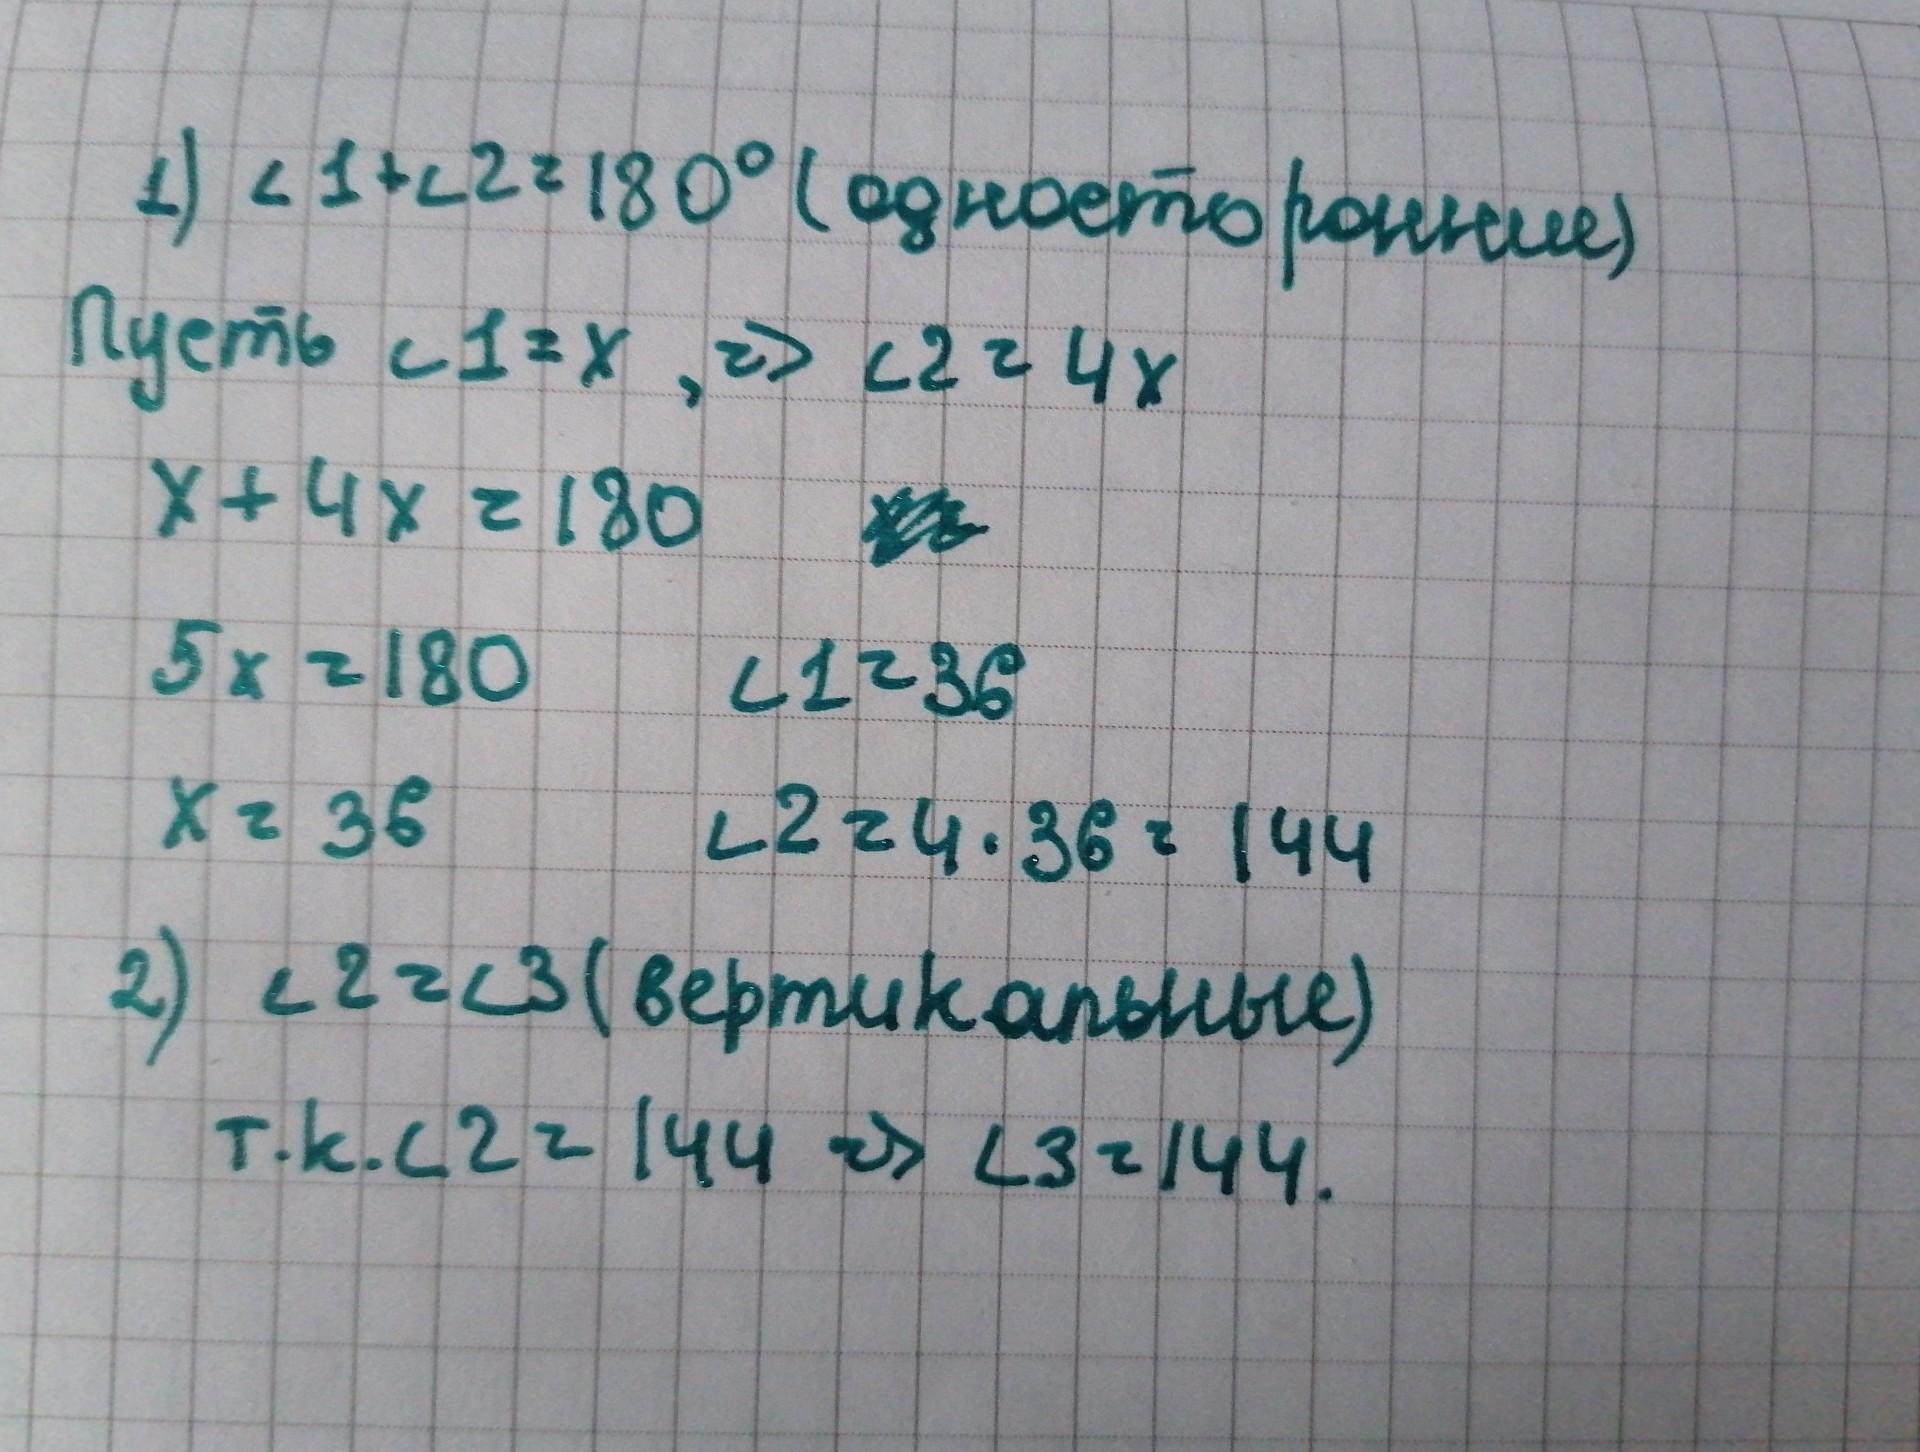 1) ∠1+∠2=180° (односторонние)
Пусть ∠1=x, => ∠2=4x
x+4x=180
5x=180 ∠1=36
x=36 ∠2=4·36=144
2) ∠2=∠3 (вертикальные)
т.к. ∠2=144 => ∠3=144.